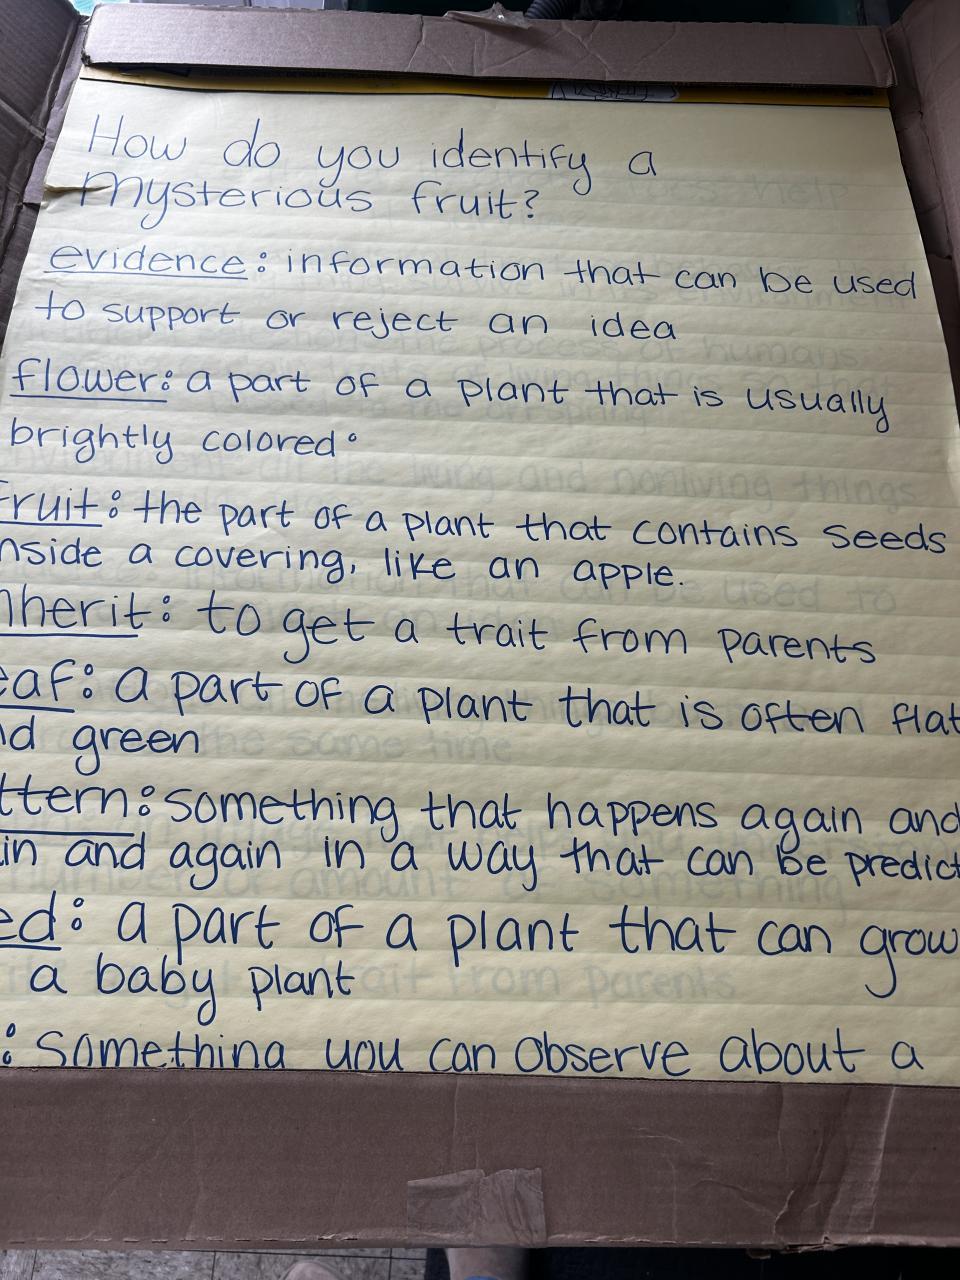 How do you identify a
mysterious fruit?
evidence: information that can be used
to support or reject an idea
flower: a part of a plant that is usually
brightly colored
fruit: the part of a plant that contains seeds
nside a covering, like an apple.
nherit: to get a trait from parents
eaf: a part of a plant that is often flat
nd green
ttern: something that happens again and
in and again in a way that can be predict
ed: a part of a plant that can grow
a baby plant
: something you can observe about a